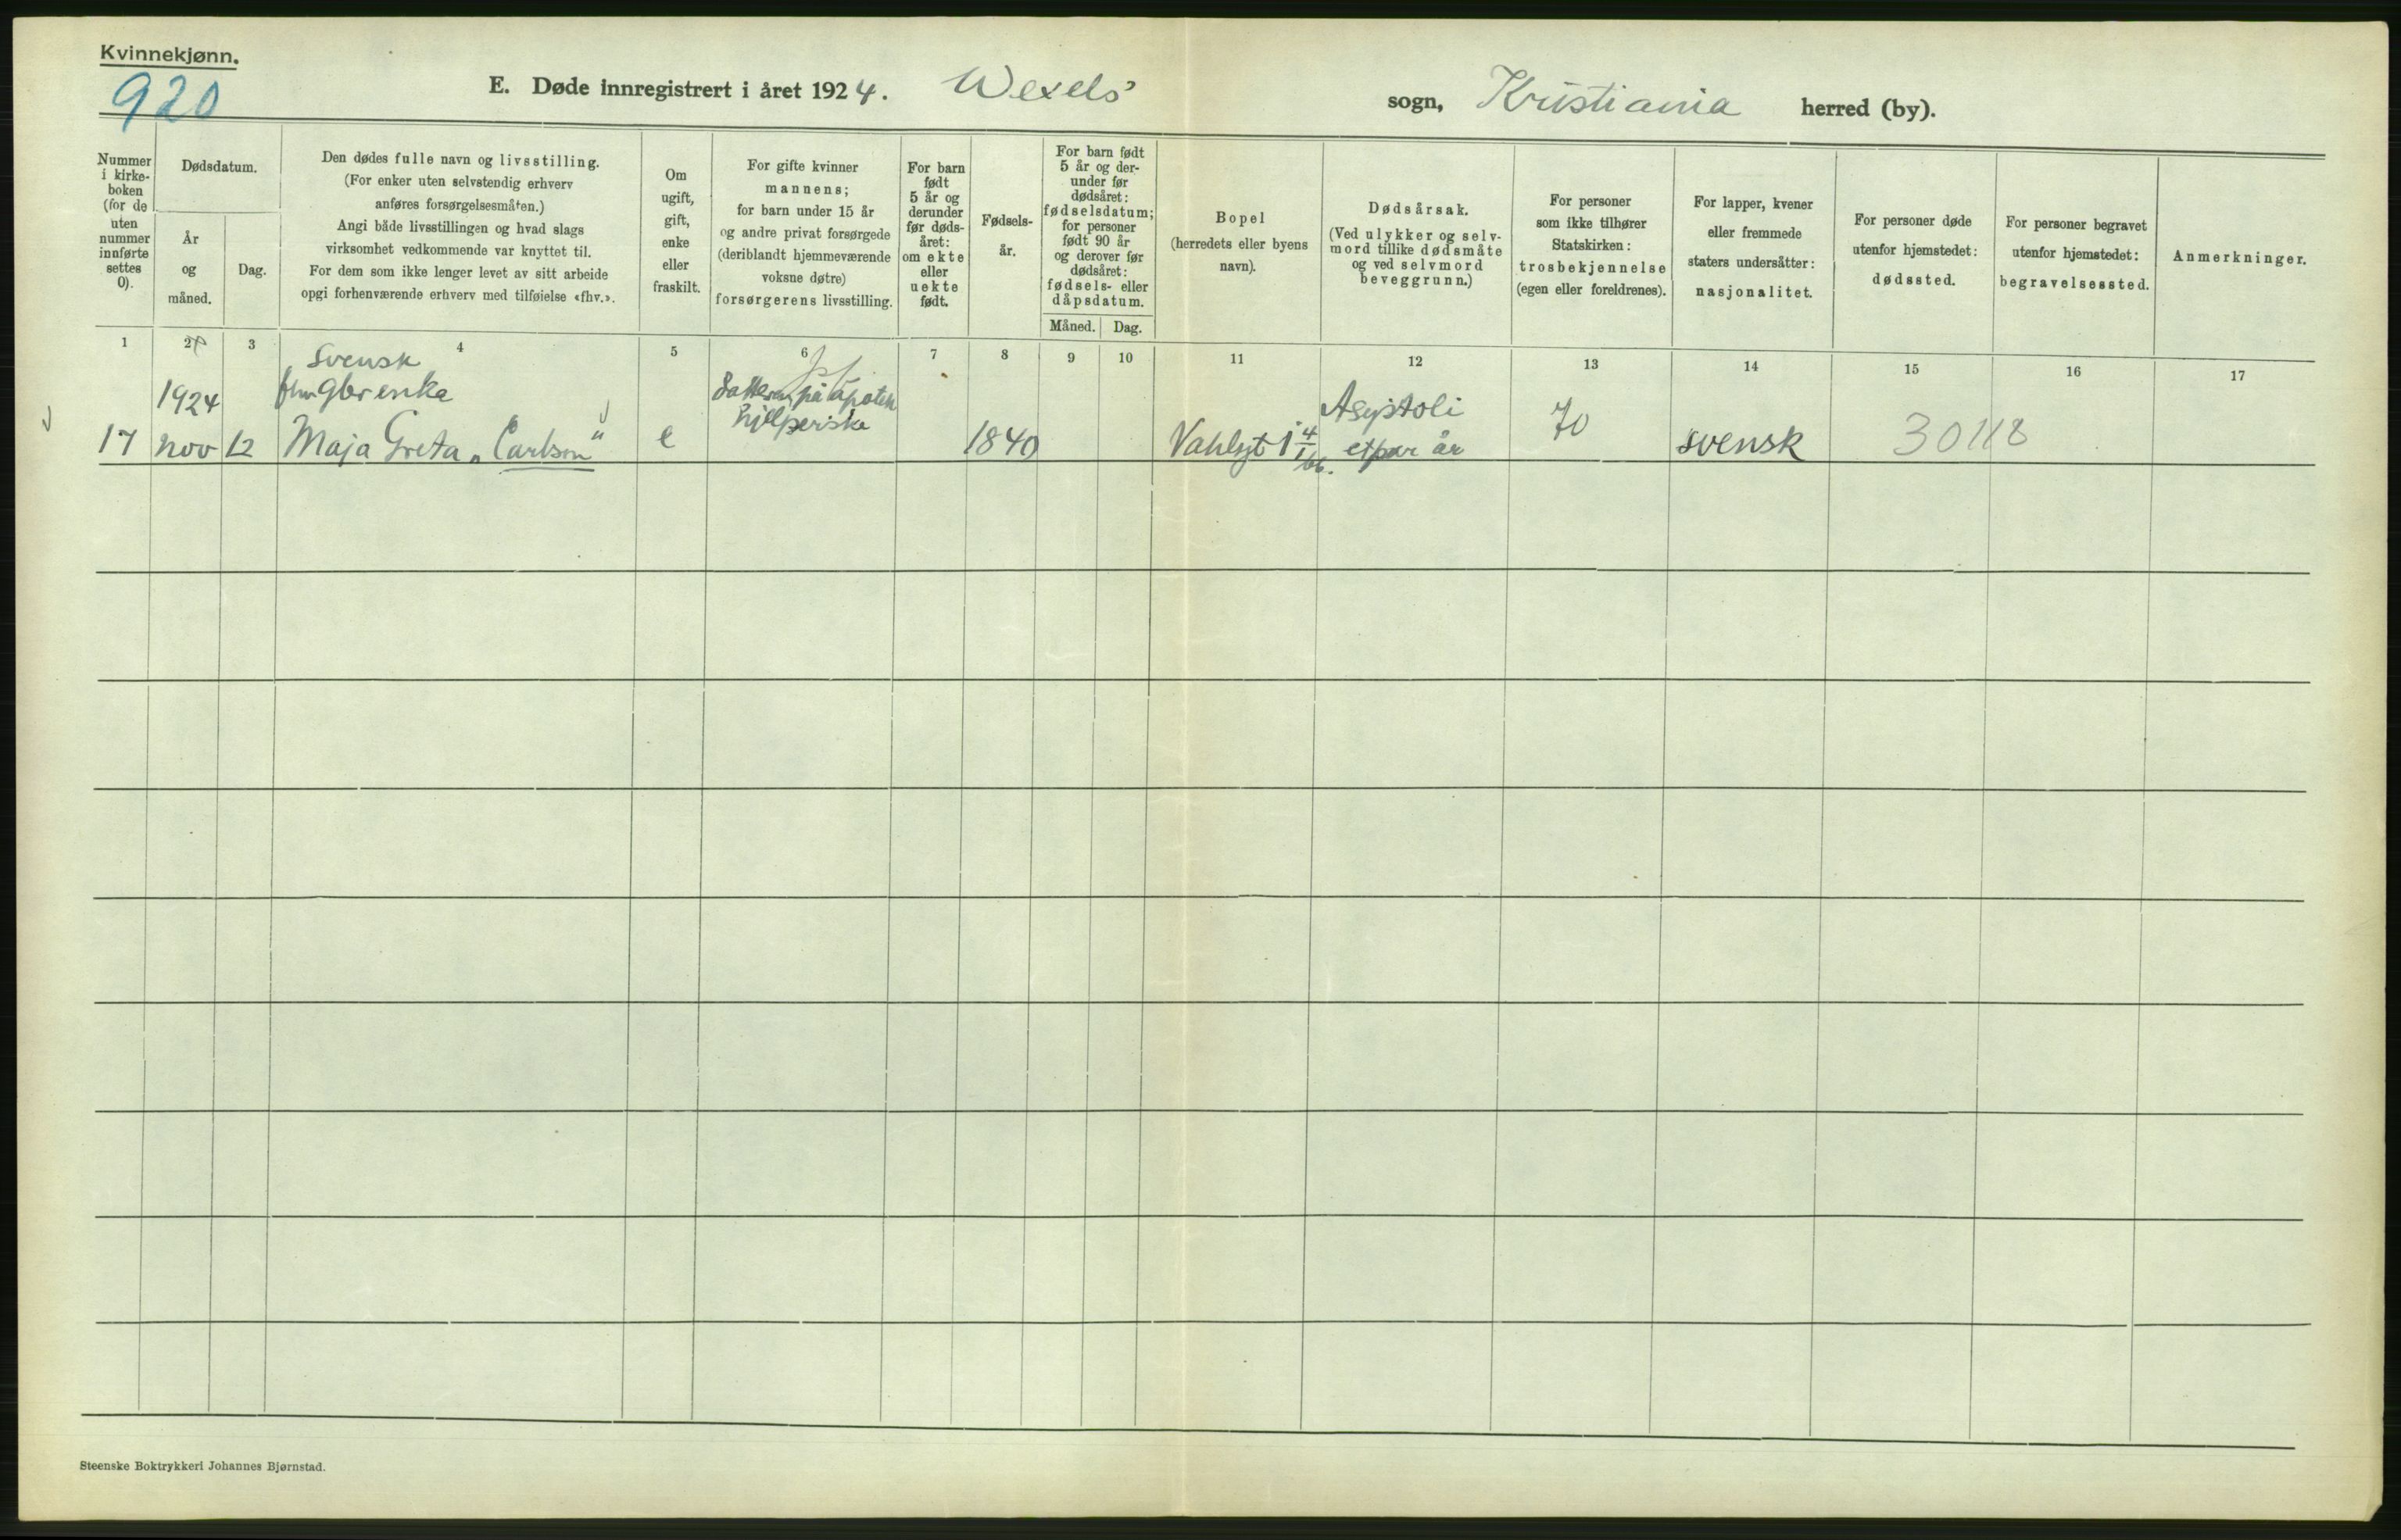 Kvinnekjønn.
920
E. Døde innregistrert i året 1924. Wexels' sogn, Kristiania herred (by).
Nummer i kirke-boken (for de uten nummer innførte settes 0).
Dødsdatum.
År og måned.
Dag.
Den dødes fulle navn og livsstilling.
(For enker uten selvstendig erhverv
anføres forsørgelsesmåten.)
Angi både livsstillingen og hvad slags
virksomhet vedkommende var knyttet til.
For dem som ikke lenger levet av sitt arbeide
opgi forhenværende erhverv med tilføielse «fhv.».
Om
ugift,
gift,
enke
eller
fraskilt.
For gifte kvinner
mannens;
for barn under 15 år
og andre privat forsørgede
(deriblandt hjemmeværende
voksne døtre)
forsørgerens livsstilling.
For barn
født
5 år og
derunder
før døds-
året:
om ekte
eller
uekte
født.
Fødsels-
år.
For barn født
5 år og der-
under før
dødsåret:
fødselsdatum;
for personer
født 90 år
og derover før
dødsåret:
fødsels- eller
dåpsdatum.
Måned. Dag.
Bopel
(herredets eller byens
navn).
Dødsårsak.
(Ved ulykker og selv-
mord tillike dødsmåte
og ved selvmord
beveggrunn.)
For personer
som ikke tilhører
Statskirken:
trosbekjennelse
(egen eller foreldrenes).
For lapper, kvener
eller fremmede
staters undersåtter:
nasjonalitet.
For personer døde
utenfor hjemstedet:
dødssted.
For personer begravet
utenfor hjemstedet:
begravelsessted.
Anmerkninger.
1 2 3 4 5 6 7 8 9 10 11 12 13 14 15 16 17
svensk
1924
på apotek
Asystoli
70
17 nov 12 Maja Greta „Carlson" e 1840 etpar år svensk 30118
Steenske Boktrykkeri Johannes Bjørnstad.